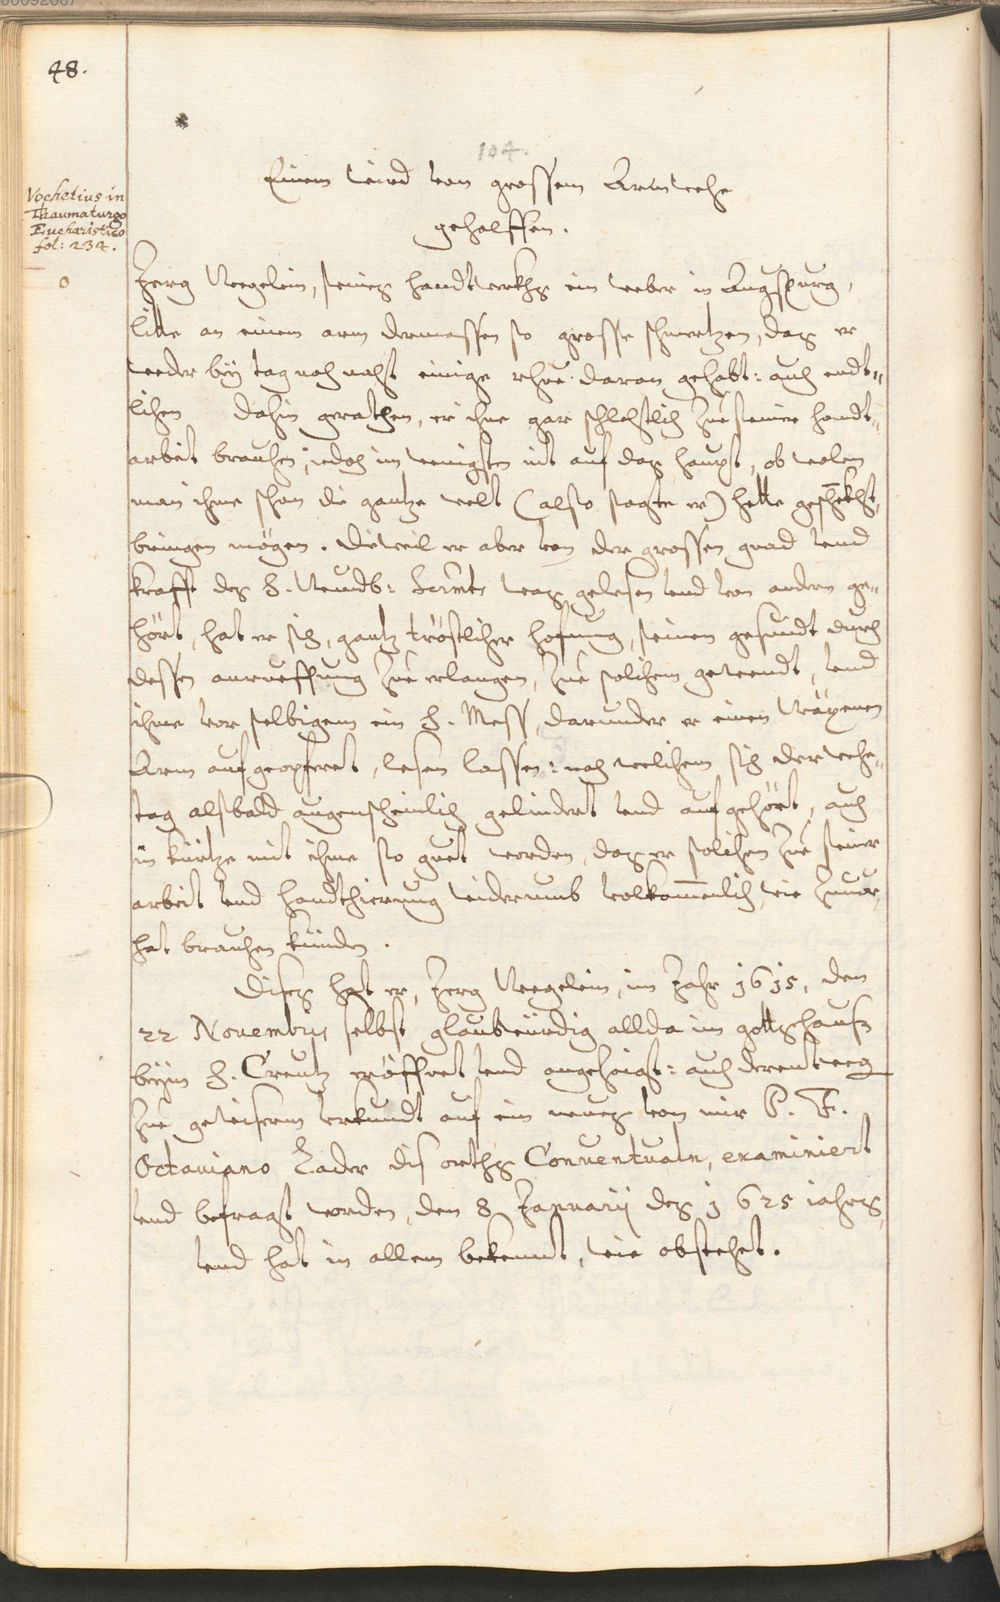 48.
104.
Einem wird von grossem Armwehe
geholffen.
Vochetius in
Thaumaturgo
Eucharistico
fol: 234.
Jerg Negelein, seines handtwerkhs ein weber in Augspurg,
litte an einem arm dermassen so grosse schmertzen, das er
weder bëy tag noch nacht einige rhue daran gehabt: auch endt„
lichen dahin gerathen, er ihne gar schlechtlich zue seiner handt„
arbeit brauchen, iedoch im wenigsten nit auf das haupt, ob wolen
man ihme schon die gantze welt (also sagte er) hette geschekht,
bringen mögen. Dieweil er aber von der grossen gnad vnd
krafft des H. Wundb: Sacrmts was gelesen vnd von andern ge„
hört, hat er sich, gantz tröstlicher hofnung, seinen gesundt durch
dessen anrueffung zue erlangen, zue solichem gewendt, vnd
ihme vor selbigem ein H. Mess, darunder er einen Wäxenen
Arm aufgeopferet, lesen lassen: nach welichem sich der wehe„
tag alsbald augenscheinlich gelindert vnd aufgehört, auch
in kürtze mit ihme so guet worden, das er solichen zue seiner
arbeit vnd handthierung widerumb volkom̅enlich, wie zuuor,
hat brauchen künden.
Dises hat er, Jerg Negelein, im Jahr 1615, den
22 Nouembris selbst glaubwürdig allda im gottshauss
bëym H. Creutz eröffnet vnd angezeigt: auch derentweg
zue gewiserm vrkundt auf ein neues von mir P. F.
Octauiano Lader dis orths Conuentualn, examiniert
vnd befragt worden, den 8 Januarij des 1625 iahrs,
vnd hat in allem bekennt, wie obstehet.